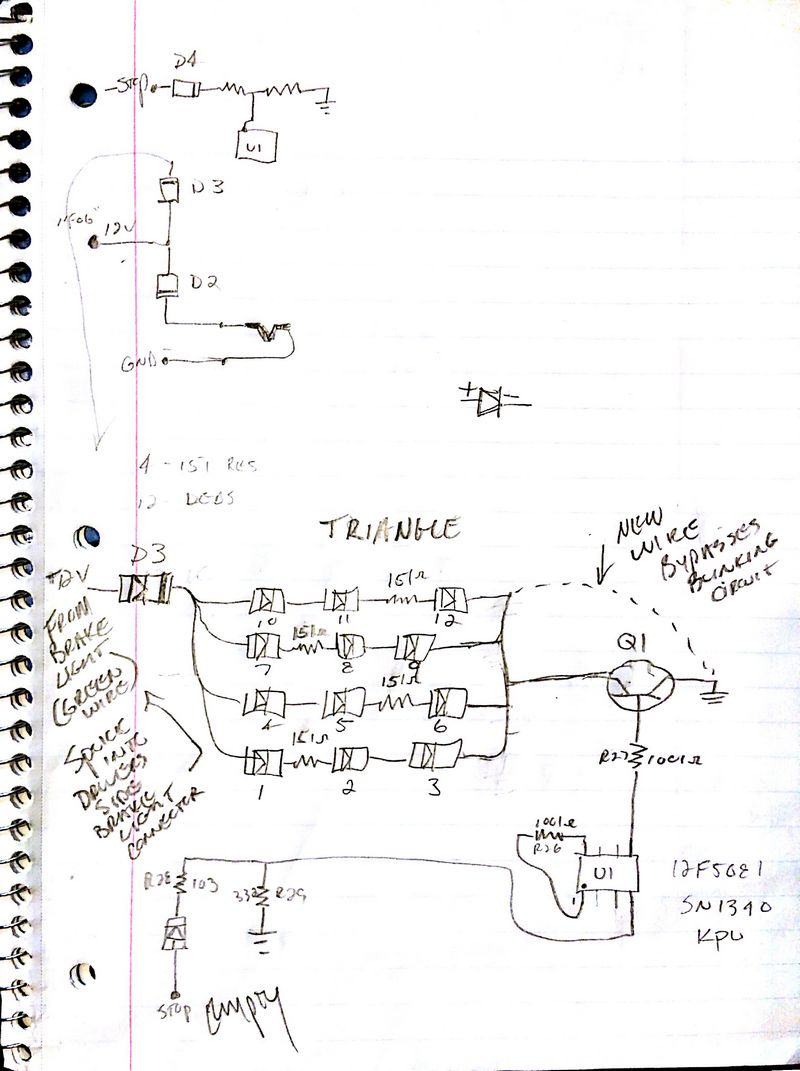 D4
STOP
U1
D3
"FOG" 12V
D2
GND
+ -
4 - 151 RES
12 - LEDS
TRIANGLE
NEW
WIRE
BYPASSES
BLINKING
CIRCUIT
D3
+12V
FROM
BRAKE
LIGHT
(GREEN
WIRE)
SPLICE
INTO
DRIVERS
SIDE
BRAKE
LIGHT
CONNECTOR
151Ω
10 11 12
151Ω
7 8 9
151Ω
4 5 6
151Ω
1 2 3
Q1
R27 1001Ω
1001Ω
R26
U1
1
12F5081
SN1340
KPU
R28 103
332 R29
STOP
empty